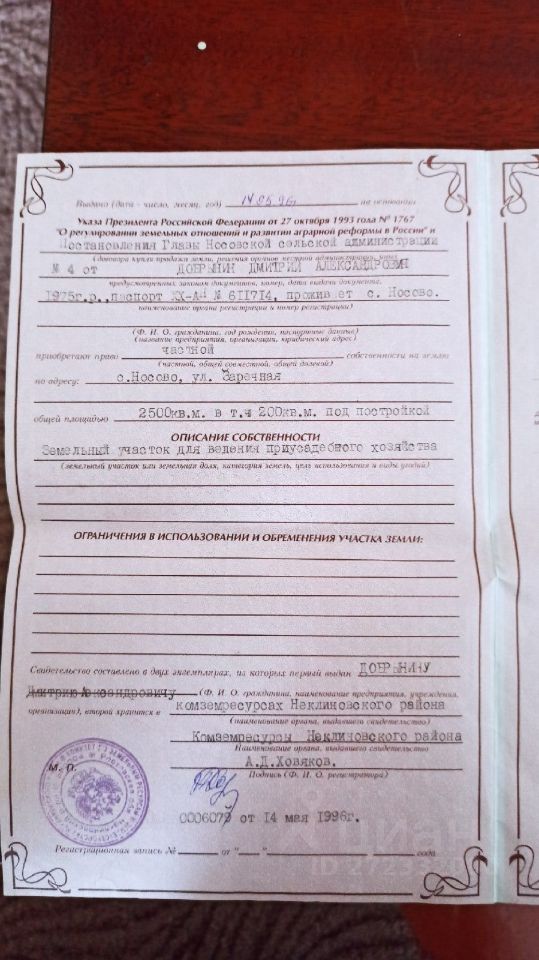 Выдано (дата - число, месяц, год) 14.05.96 на основании
Указа Президента Российской Федерации от 27 октября 1993 года № 1767
"О регулировании земельных отношений и развитии аграрной реформы в России" и
Постановления Главы Носовской сельской администрации
(договора купли продажи земли, решения органов местной администрации, иных
№ 4 от ДОБРЫНИН ДМИТРИЙ АЛЕКСАНДРОВИЧ
предусмотренных законом документов, номер, дата выдачи документа,
1975г.р., паспорт XX-АН № 611714, проживает с. Носово.
наименование права регистрации и номер регистрации)
(Ф. И. О. гражданина, год рождения, паспортные данные)
(название предприятия, организация, юридический адрес)
приобретает право частной собственности на землю
(частной, общей совместной, общей долевой)
по адресу: с.Носово, ул. Заречная
общей площадью 2500кв.м. в т.ч 200кв.м. под постройкой
ОПИСАНИЕ СОБСТВЕННОСТИ
Земельный участок для ведения приусадебного хозяйства
(земельный участок или земельная доля, категория земель, цель использования и виды угодий)
ОГРАНИЧЕНИЯ В ИСПОЛЬЗОВАНИИ И ОБРЕМЕНЕНИЯ УЧАСТКА ЗЕМЛИ:
Свидетельство составлено в двух экземплярах, из которых первый выдан ДОБРЫНИНУ
(Ф. И. О. гражданина, наименование предприятия, учреждения,
организации), второй хранится в комземресурсах Неклиновского района
(наименование органа, выдавшего свидетельство)
Комземресурсы Неклиновского района
Наименование органа, выдавшего свидетельство
М. П. А.Д.Ховяков.
Подпись (Ф. И. О. регистратора)
0006079 от 14 мая 1996г.
Регистрационная запись № от "__" года